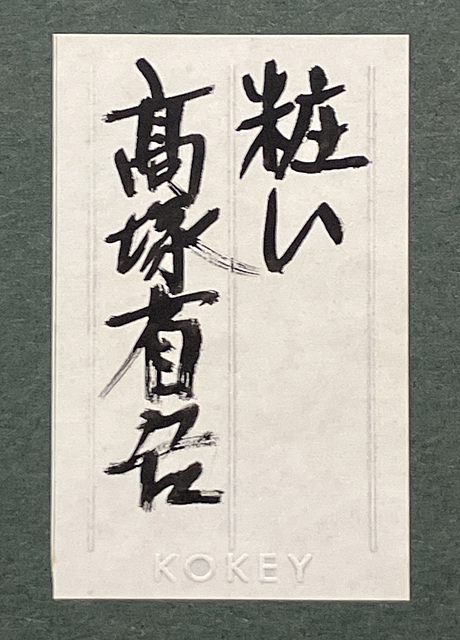 粧い
髙塚省吾
KOKEY